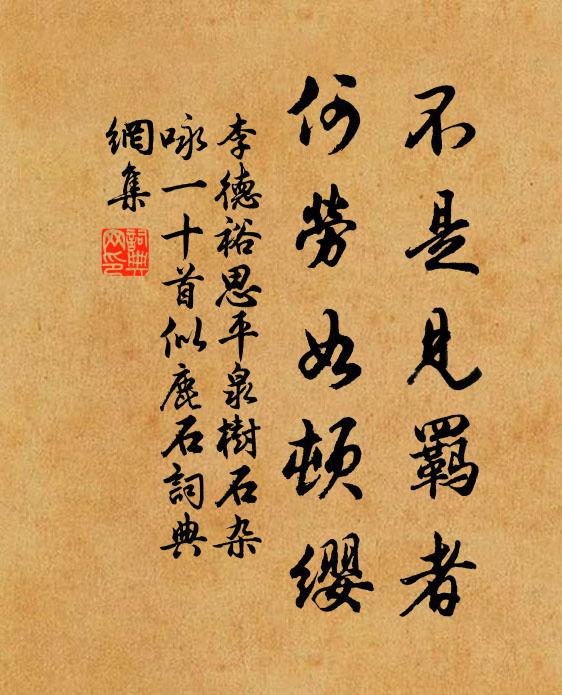 不是見羈者
何勞如頓纓
李德裕思平泉樹石杂
咏一十首似鹿石詞典
網集
詞典網印